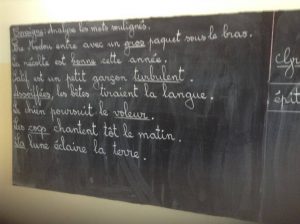 Consigne: Analyse les mots soulignés.
Modou entre avec un gros paquet sous le bras.
La récolte est bonne cette année.
Salif est un petit garçon turbulent.
Assoiffées, les bêtes tiraient la langue.
Le chien poursuit le voleur.
Les coqs chantent tôt le matin.
La lune éclaire la terre.
épit